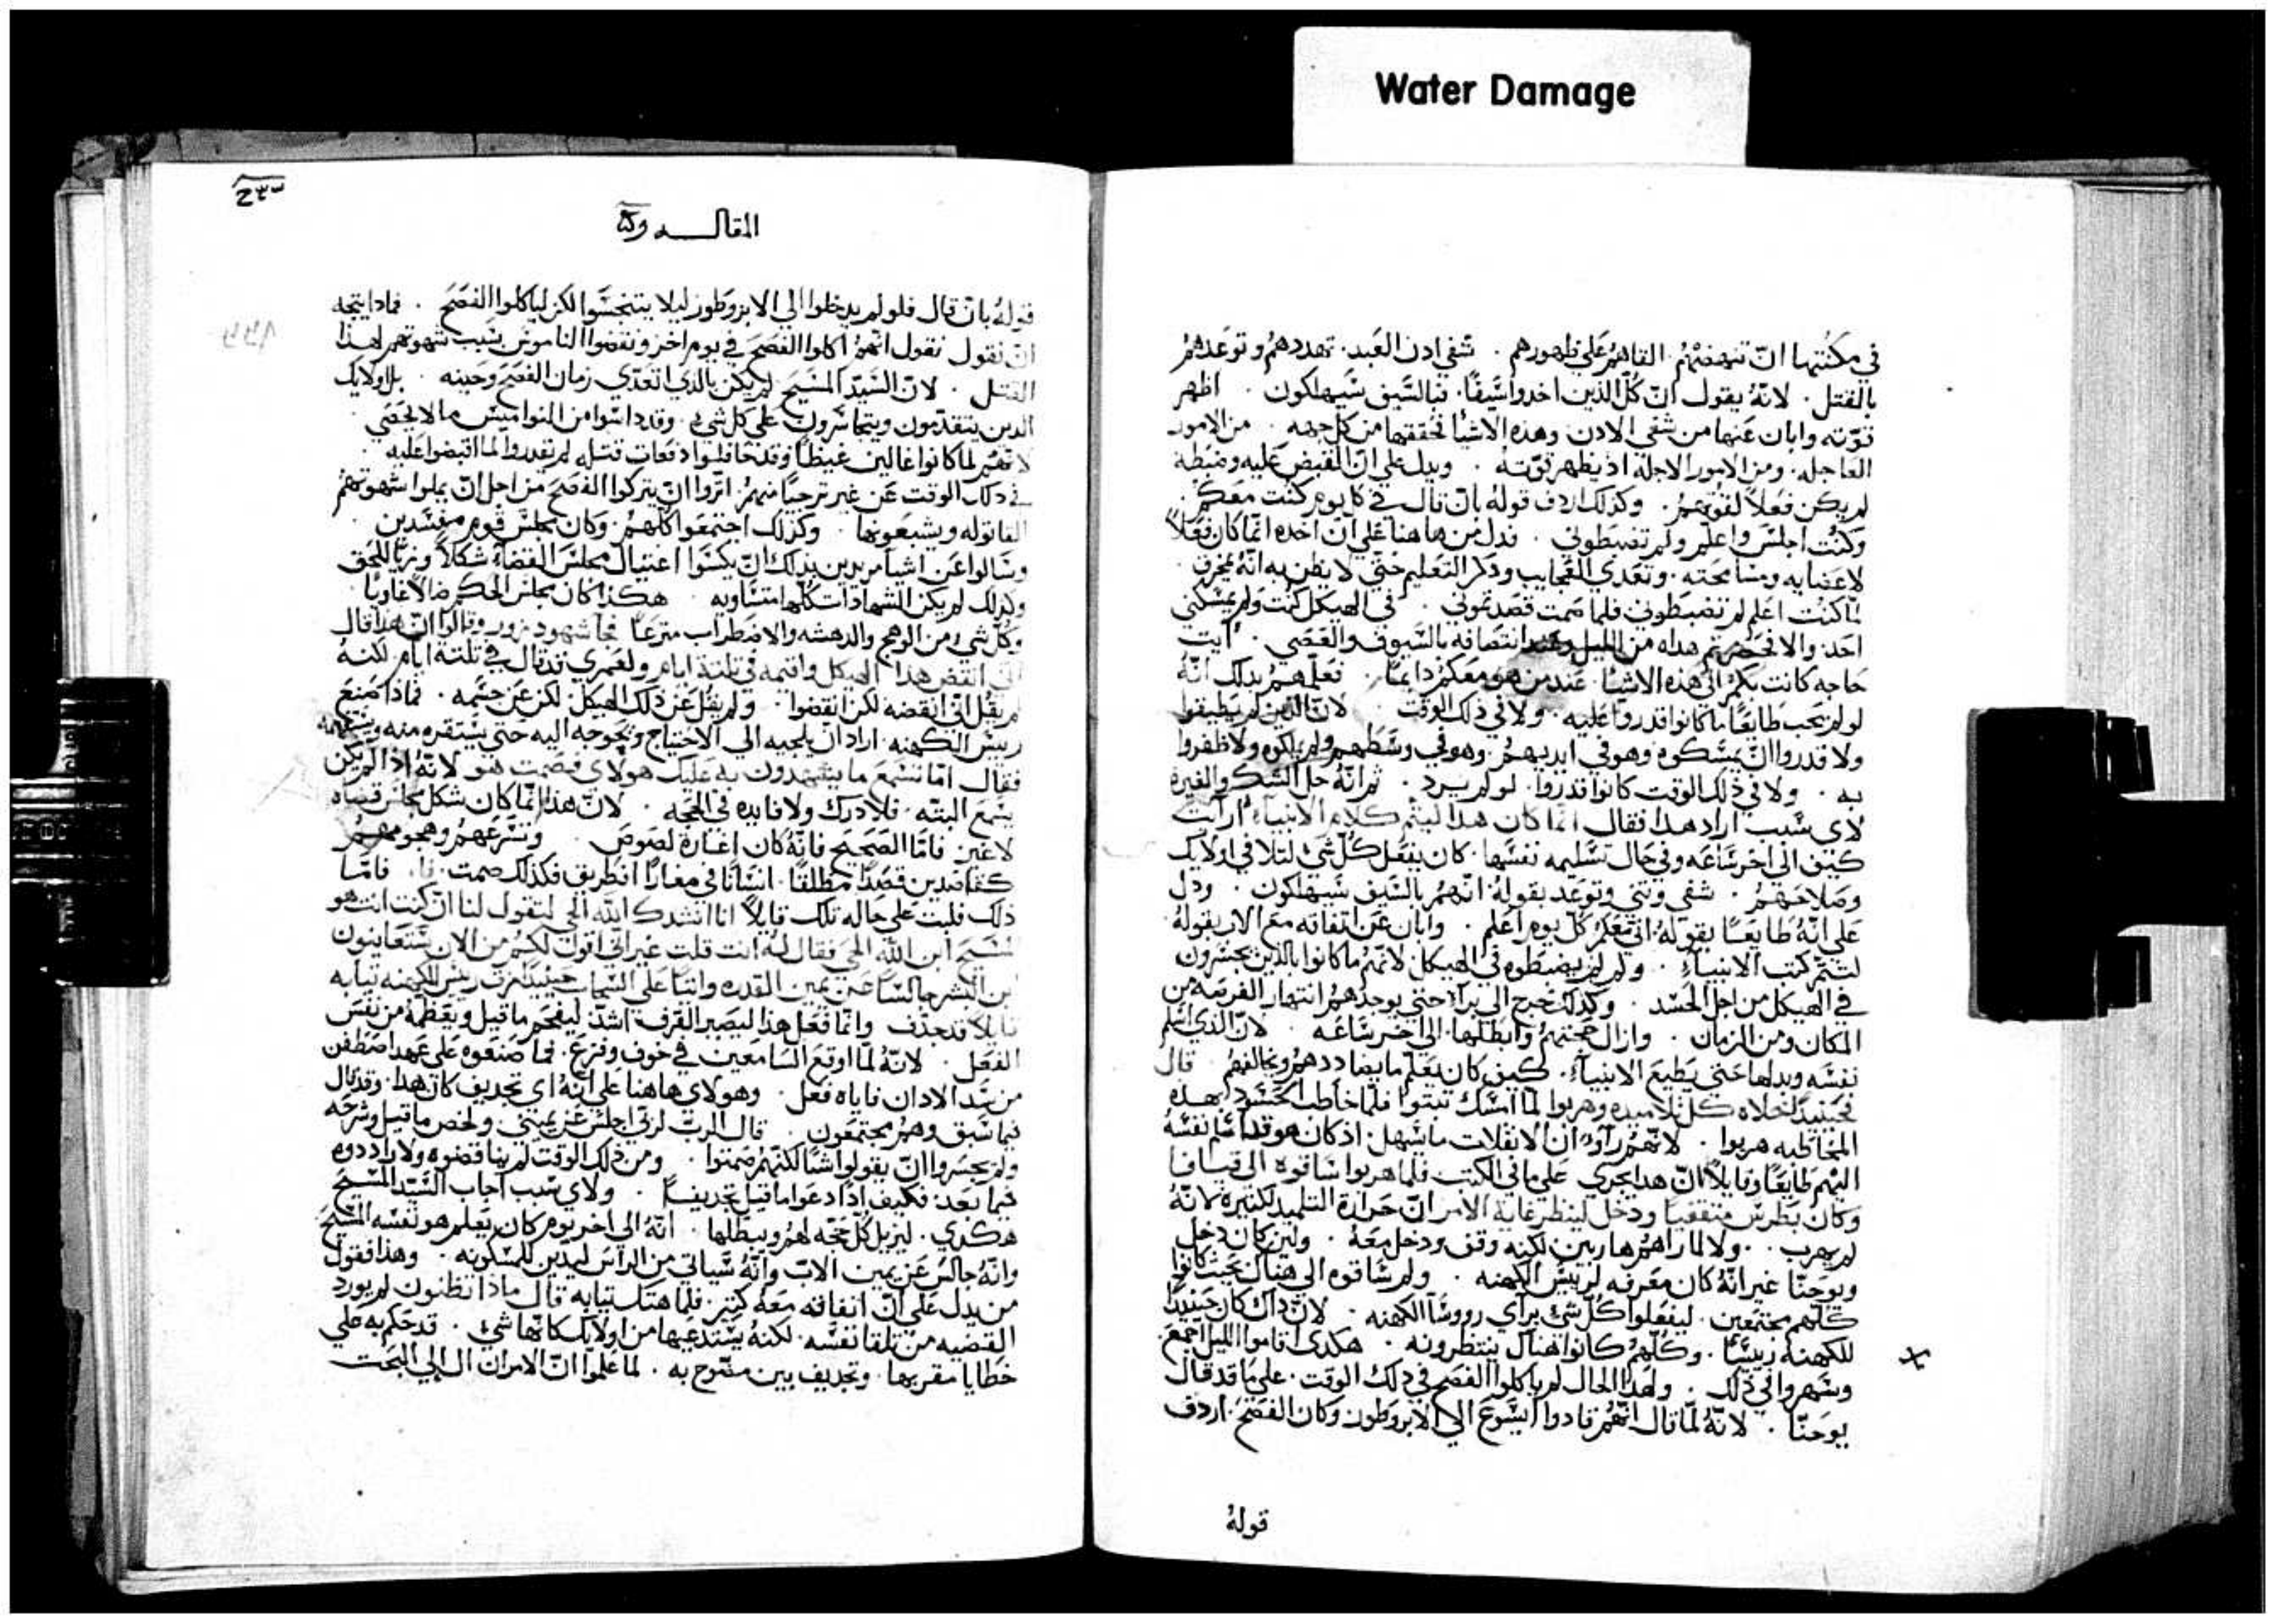 Water Damage
في مكنتها ان تنهضهم القاهم علي ظهورهم . شفي ادن العبد. تهددهم وتوعدهم
بالقتل . لانه يقول ان كل الذين اخدوا سيفا. فبالسيف سيهلكون . اظهر
قوته وابان عنها من شفي الادن وهذه الاشيا تحققها من كل جهه . من الامور
العاجله. ومن الامور الاجله اذ يظهر قوته . ويدل علي ان القبض عليه وضبطه
لم يكن فعلا لقوتهم. وكذلك اردف قوله بان قال في كل يوم كنت معكم
وكنت اجلس واعلم ولم تضبطوني . فدل من هاهنا علي ان اخده انما كان فعلا
لاغضايه ومسامحته. وتعدي العجايب ودكر التعليم حتي لا يظن به انه مخرف .
لما كنت اعلم لم تضبطوني فلما صمت قصدتموني . في الهيكل كنت ولم يمسكني
احد. والا في من الليل انتصافه بالسيوف والعصي . ايت
حاجه كانت بكم الي هذه الاشيا عند من هو معكم دايما . فعلمهم بدلك انه
لو لم يجب طايعا ما كانوا قدروا عليه. ولا في ذلك الوقت لان الذين لم يطيقوا
ولا قدروا ان يمسكوه وهو في ايديهم. وهو في وسطهم ولم يملكوه ولا ظفروا
به . ولا في ذلك الوقت كانوا قدروا. لو لم يرد . ثم انه حل الشك والغيره
لاي سبب اراد هدا فقال انما كان هدا ليتم كلام الانبياء ارايت
كيف الي اخر ساعه وفي حال تسليمه نفسها. كان يفعل كل شي لتلافي اولايك
وصلاحهم . شفي وتني وتوعد بقوله انهم بالسيف سيهلكون . ودل
علي انه طايعا بقوله اني معكم كل يوم اعلم . وابان عن اتفاقه مع الاب بقوله
لتتم كتب الانبياء . ولم لم يضبطوه في الهيكل لانهم ما كانوا بالذين يجسرون
في الهيكل من اجل الحسد . وكذلك خرج الي برا حتي يوجدهم انتهاز الفرصه من
المكان ومن الزمان . وازال حجتهم وابطلها الي اخر ساعه . لان الذي اسلم
نفسه وبدلها حتي يطيع الانبياء. كيف كان يعلم ما يضاددهم ويخالفهم قال
فحينيد خلاه كل تلاميده وهربوا لما امسك تبتوا فلما خاطب الحشود بهده
المخاطبه هربوا . لانهم راوا ان الانفلات ما يسهل. اذ كان هو قد اسلم نفسه
اليهم طايعا وقايلا ان هدا يجري علي ما في الكتب فلما هربوا ساقوه الي قيافا
وكان بطرس متقفيا ودخل لينظر غاية الامر ان حرارة التلميد لكتيره لانه
لم يهرب . ولا لما راهم هاربين لكنه وقف ودخل معه . ولين كان دخل
ويوحنا غير انه كان معرفه لريس الكهنه . ولم ساقوه الي هناك بحيث كانوا
كلهم مجتمعين. ليفعلوا كل شي براي رووسا الكهنه . لان ذاك كان حينيدا
للكهنه رييسا . وكلهم كانوا هناك ينتظرونه . هكدي اقاموا الليل اجمع
وسهروا في ذلك . ولهدا الحال لم ياكلوا الفصح في ذلك الوقت. علي ما قد قال
يوحنا . لانه لما قال انهم قادوا ايسوع الي الابروطون وكان الفصح. اردف
قوله
المقاله
قوله بان قال فلو لم يدخلوا الي الابروطون ليلا يتنجسوا لكن لياكلوا الفصح . فمادا يتجه
ان نقول نقول انهم اكلوا الفصح في يوم اخر ونقضوا الناموس بسبب شهوتهم لهذا
القتل . لان السيد المسيح لم يكن بالذي اتعدي زمان الفصح وحينه . بل اولايك
الدين يتقدمون ويتجاسرون علي كل شي. وقد داسوا من النواميس ما لا يحصي
لانهم لما كانوا غالين غيظا وقد حاولوا دفعات قتله لم يقدروا لما اقبضوا عليه .
في دلك الوقت عن غير ترجيا منهم. اتروا ان يتركوا الفصح من اجل ان يملوا شهوتهم
القاتوله ويشبعونها . وكذلك اجتمعوا كلهم. وكان مجلس قوم مفسدين .
وسالوا عن اشيا مريدين بذلك ان يكسوا اغتيال مجلس القضاء شكلا وزيا للحق
وكذلك لم يكن الشهادات كلها متساويه . هكذا كان مجلس الحكم
وكل شي من الوهج والدهشه والاضطراب مترعا فجا شهود زور وقالوا ان هدا قال
اني انقض هدا الهيكل واقيمه في ثلثة ايام ولعمري قد قال في ثلثة ايام لكنه
لم يقل اني انقضه لكن انقضوا . ولم يقل عن ذلك الهيكل. لكن عن جسمه . فماذا صنع
رييس الكهنه. اراد ان يلجيه الي الاحتياج ويحوجه اليه حتي يستقره منه
فقال اما تسمع ما يشهدون به عليك هولاي فصمت هو لانه اذا لم يكن
يسمع البته. فلا درك ولا فايده في الحجه . لان هذا انما كان شكل مجلس قضاه
لاغير فاما الصحيح فانه كان اغارة لصوص . وتسرعهم وهجومهم
كقاصدين قصدا مطلقا. انسانا في مغارا فكذلك صمت . فاما
ذلك فلبت علي حاله تلك قايلا انا انشدك الله الحي لتقول لنا ان كنت انت هو
المسيح ابن الله الحي فقال له انت قلت غير اني اقول لكم من الان ستعاينون
ابن البشر جالسا عن يمين القدره واتيا علي السحاب حينيدا مزق رييس الكهنه تيابه
قايلا قد جدف وانما فعل هذا ليصير القرف اشد. ليفخم ما قيل ويعظمه من نفس
الفعل . لانه لما اوقع السامعين في خوف وفزع. فما صنعوه علي عهد اصطفن
من سد الادان فاياه فعل . وهولاي هاهنا علي انه اي تجديف كان هدا. وقد قال
فيما سبق وهم مجتمعون . قال الرب لربي اجلس عن يميني. ولخص ما قيل وشرحه
ولم يجسروا ان يقولوا شيا لكنهم صمتوا . ومن ذلك الوقت لم يناقضوه ولا راددوه
فيما بعد. فكيف اذا دعوا ما قيل تجديفا . ولاي سبب اجاب السيد المسيح
هكدي. ليزيل كل حجه لهم ويبطلها . انه الي اخر يوم كان يعلم هو نفسه المسيح
وانه جالس عن يمين الاب وانه سياتي من الراس ليدين للمسكونه . وهذا فقول
من يدل علي ان اتفاقه معه كتير. فلما هتك تيابه قال ماذا تظنون لم يورد
القضيه من تلقا نفسه. لكنه يستدعيها من اولايك كانها شي . قد حكم به علي
خطايا مقر بها. وتجديف بين مصرح به . لما علموا ان الامر ان ال الي البحت